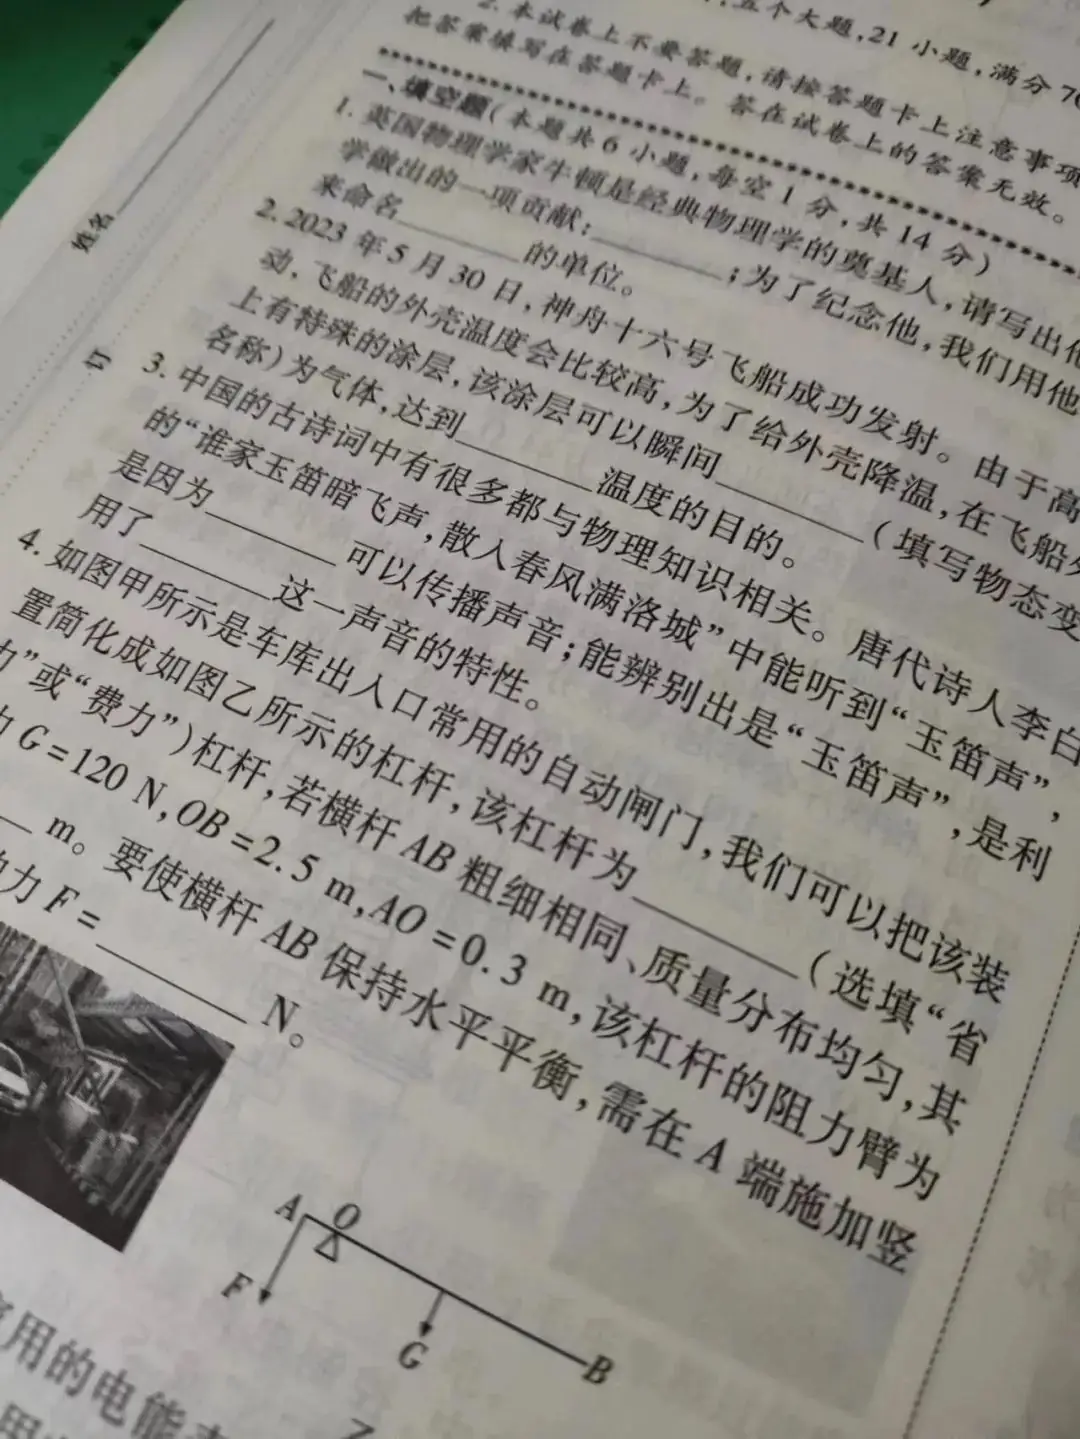 五个大题,21 小题,满分 70
2. 本试卷上不要答题,请按答题卡上注意事项
把答案填写在答题卡上。答在试卷上的答案无效。
一、填空题(本题共 6 小题,每空 1 分,共 14 分)
1. 英国物理学家牛顿是经典物理学的奠基人,请写出他
学做出的一项贡献:______;为了纪念他,我们用他
来命名______的单位。
2. 2023 年 5 月 30 日,神舟十六号飞船成功发射。由于高
动,飞船的外壳温度会比较高,为了给外壳降温,在飞船外
上有特殊的涂层,该涂层可以瞬间______(填写物态变
名称)为气体,达到______温度的目的。
3. 中国的古诗词中有很多都与物理知识相关。唐代诗人李白
的“谁家玉笛暗飞声,散入春风满洛城”中能听到“玉笛声”,
是因为______可以传播声音;能辨别出是“玉笛声”,是利
用了______这一声音的特性。
4. 如图甲所示是车库出入口常用的自动闸门,我们可以把该装
置简化成如图乙所示的杠杆,该杠杆为______(选填“省
力”或“费力”)杠杆,若横杆 AB 粗细相同、质量分布均匀,其
G=120 N,OB=2.5 m,AO=0.3 m,该杠杆的阻力臂为
______ m。要使横杆 AB 保持水平平衡,需在 A 端施加竖
力 F=______ N。
姓名
A O
F
G
B
用的电能